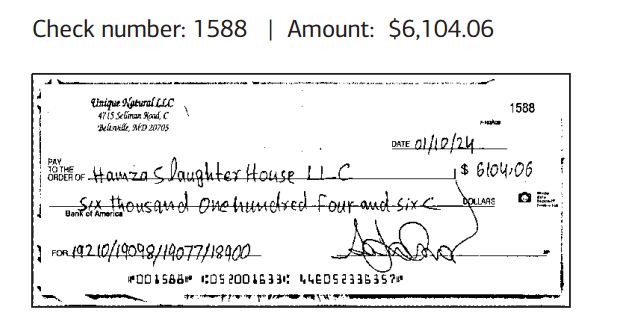 Check number: 1588 | Amount: $6,104.06
Unique Natural LLC
4715 Sellman Road, C
Beltsville, MD 20705
1588
DATE 01/10/24
PAY TO THE ORDER OF Hamza Slaughter House LLC $ 6104.06
Six thousand One hundred Four and six C DOLLARS
Bank of America
FOR 19210/19098/19077/18900
⑈001588⑈ ⑆052001633⑆ 446052336357⑈